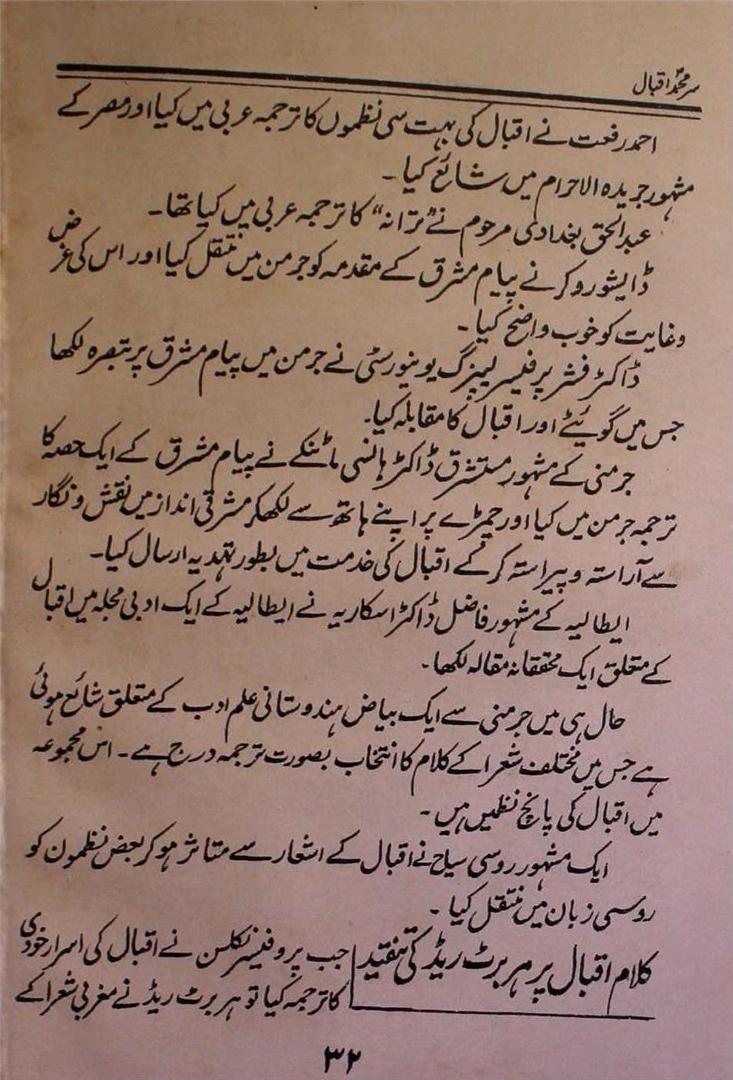 سر محمد اقبال
احمد رفعت نے اقبال کی بہت سی نظموں کا ترجمہ عربی میں کیا اور مصر کے
مشہور جریدہ الاحرام میں شائع کیا۔
عبد الحق بغدادی مرحوم نے "ترانہ" کا ترجمہ عربی میں کیا تھا۔
ڈایشورو کر نے پیام مشرق کے مقدمہ کو جرمن میں منتقل کیا اور اس کی غرض
و غایت کو خوب واضح کیا۔
ڈاکٹر فشر پرفیسر لیپزگ یونیورسٹی نے جرمن میں پیام مشرق پر تبصرہ لکھا
جس میں گوئیٹے اور اقبال کا مقابلہ کیا۔
جرمنی کے مشہور مستشرق ڈاکٹر ہانسی مائنکے نے پیام مشرق کے ایک حصہ کا
ترجمہ جرمن میں کیا اور چمڑے پر اپنے ہاتھ سے لکھکر مشرقی انداز میں نقش و نگار
سے آراستہ و پیراستہ کر کے اقبال کی خدمت میں بطور ہدیہ ارسال کیا۔
ایطالیہ کے مشہور فاضل ڈاکٹر اسکاریہ نے ایطالیہ کے ایک ادبی مجلہ میں اقبال
کے متعلق ایک محققانہ مقالہ لکھا۔
حال ہی میں جرمنی سے ایک بیاض ہندوستانی علم ادب کے متعلق شائع ہوئی
ہے جس میں مختلف شعرا کے کلام کا انتخاب بصورت ترجمہ درج ہے۔ اس مجموعہ
میں اقبال کی پانچ نظمیں ہیں۔
ایک مشہور روسی سیاح نے اقبال کے اشعار سے متاثر ہو کر بعض نظمون کو
روسی زبان میں منتقل کیا۔
کلام اقبال پر ہربرٹ ریڈ کی تنقید
جب پروفیسر نکلسن نے اقبال کی اسرار خودی
کا ترجمہ کیا تو ہربرٹ ریڈ نے مغربی شعرا کے
۳۲